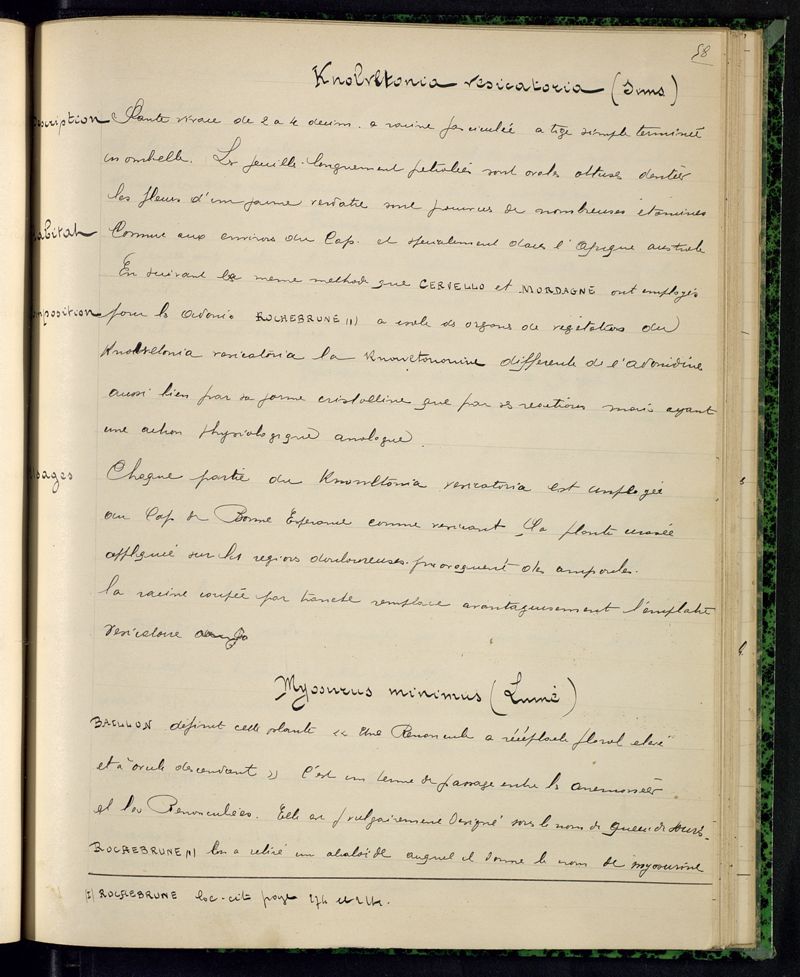 58
Knowltonia vesicatoria (Sims)
Description Plante vivace de 2 a 4 decim. a racine fasciculée a tige simple terminée
en ombelle. Les feuilles longuement petiolées sont ovales obtuses dentées
les fleurs d'un jaune verdatre sont pourvues de nombreuses étamines
Habitat Commune aux environs du Cap. et specialement dans l'Afrique australe
En suivant la meme methode que CERVELLO et MORDAGNE ont employés
Composition pour les adonis ROCHEBRUNE (1) a isolé des organes de végétation du
Knowltonia vesicatoria la Knowltonine differente de l'adonidine
aussi bien par sa forme cristalline que par ses reactions mais ayant
une action physiologique analogue.
Usages Chaque partie du Knowltonia vesicatoria est employée
au Cap de Bonne Esperance comme vesicant. La plante écrasée
appliquée sur les regions douloureuses provoquent des ampoules.
la racine coupée par tranche remplace avantageusement l'emplatre
vesicatoire
Myosurus minimus (Linné)
BAILLON définit cette plante « Une Renoncule a réceptacle floral elevé
et à ovule descendant » C'est un terme de passage entre les anemonées
et les Renonculées. Elle est vulgairement designé sous le nom de queue de souris.
ROCHEBRUNE (1) en a retiré un alcaloïde auquel il donne le nom de myosurine
(1) ROCHEBRUNE loc. cit page 274 et